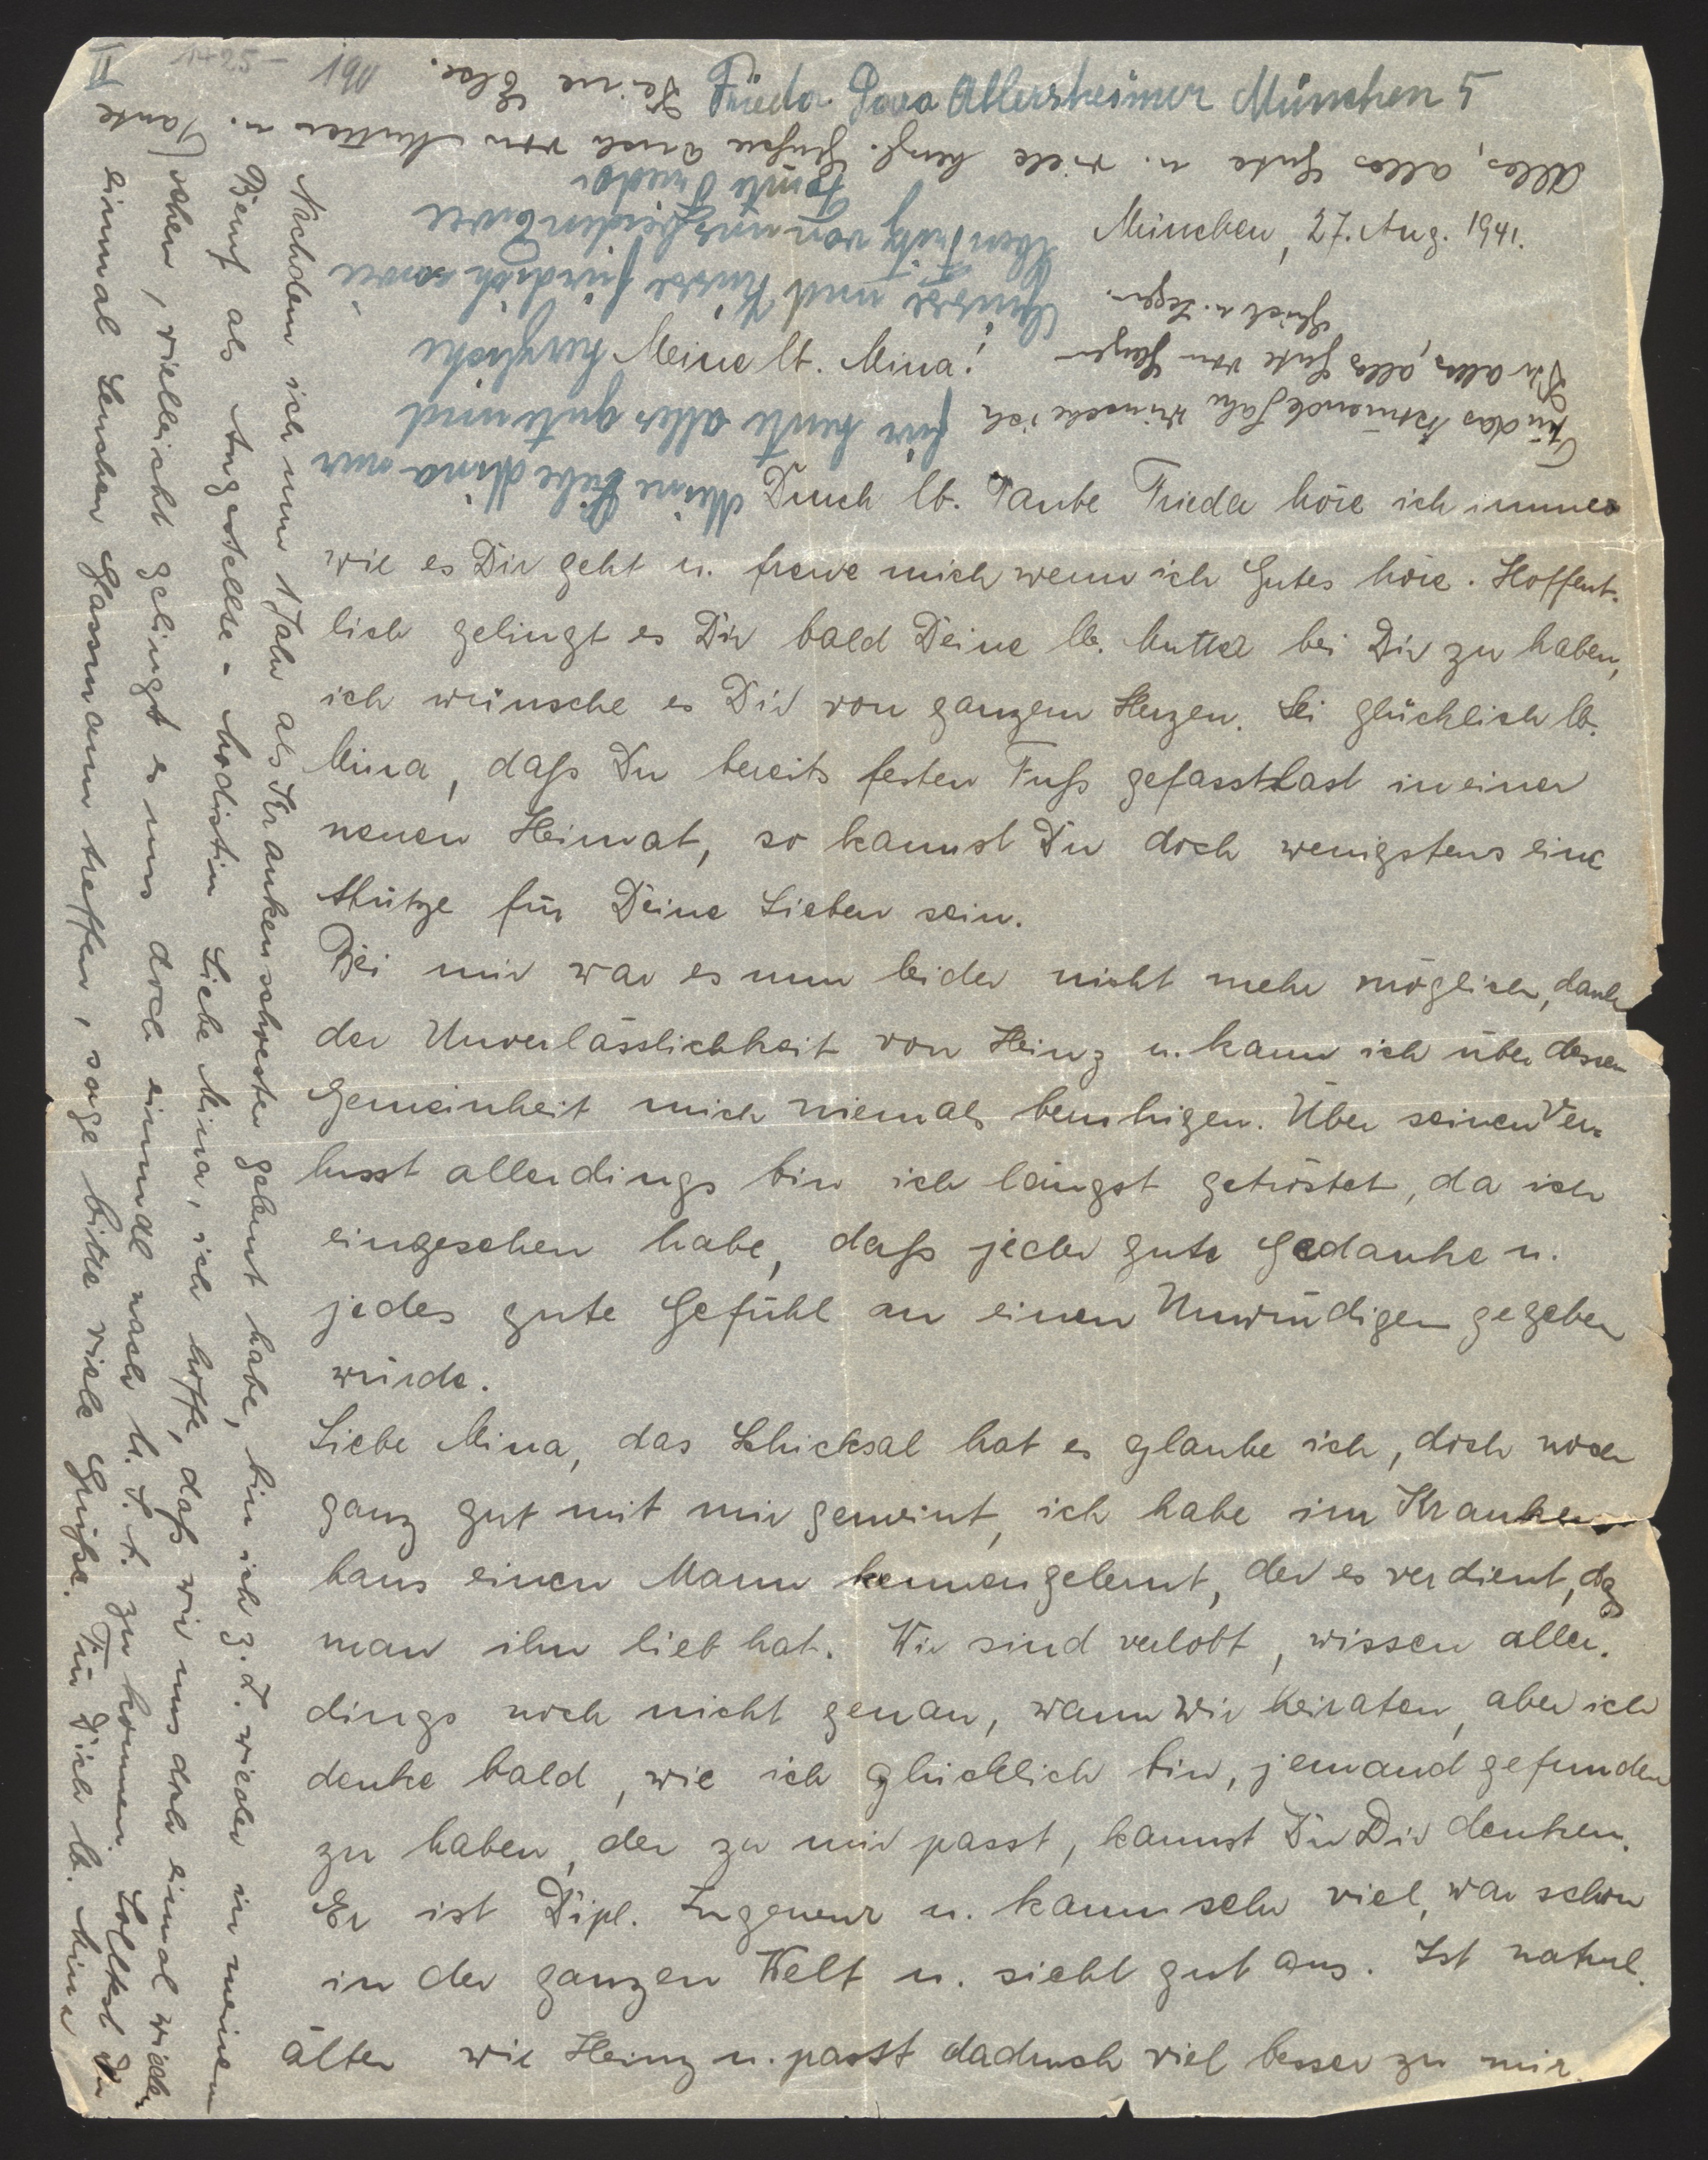 Frieda Sara Allersheimer München 5
München, 27. Aug. 1941.
Meine lb. Mina!
Durch lb. Tante Frieda höre ich immer
wie es Dir geht u. freue mich wenn ich Gutes höre. Hoffent-
lich gelingt es Dir bald Deine lb. Mutter bei Dir zu haben,
ich wünsche es Dir von ganzem Herzen. Sei glücklich lb.
Mina, daß Du bereits festen Fuß gefasst hast in einer
neuen Heimat, so kannst Du doch wenigstens eine
Stütze für Deine Lieben sein.
Bei mir war es nun leider nicht mehr möglich, dank
der Unverlässlichkeit von Heinz u. kann ich über dessen
Gemeinheit mich niemals beruhigen. Über seinen Ver-
lusst allerdings bin ich längst getröstet, da ich
eingesehen habe, daß jeder gute Gedanke u.
jedes gute Gefühl an einen Unwürdigen gegeben
würde.
Liebe Mina, das Schicksal hat es glaube ich, doch noch
ganz gut mit mir gemeint, ich habe im Kranken
haus einen Mann kennengelernt, der es verdient, daß
man ihn lieb hat. Wir sind verlobt, wissen aller-
dings noch nicht genau, wann wir heiraten, aber ich
denke bald, wie ich glücklich bin, jemand gefunden
zu haben, der zu mir passt, kannst Du Dir denken.
Er ist Dipl. Ingeneur u. kann sehr viel, war schon
in der ganzen Welt u. sieht gut aus. Ist natürl.
älter wie Heinz u. passt dadurch viel besser zu mir.
Nachdem ich nun 1 Jahr als Krankenschwester gelernt habe, bin ich z. Z. wieder in meinem
Beruf als Angestellte - Modistin. Liebe Mina, ich hoffe, daß wir uns doch einmal wieder
sehen, vielleicht gelingt es uns doch einmal nach U.S.A. zu kommen. Solltest Du
einmal Lenchen Gassmann treffen, sage bitte viele Grüße. Für Dich lb. Mina
alles, alles Gute u. viele herzl. Grüße auch von Mutter u. Tante
Deine Else.
Für das kommende Jahr wünsche ich
Dir alles, alles Gute von Herzen
Glück u. Segen.
Meine liebe Mina nur
für heute alles gute und
herzliche
Grüsse und Küsse für Dich sowie
von uns beiden Eure
Tante Frieda
II
190
1425-